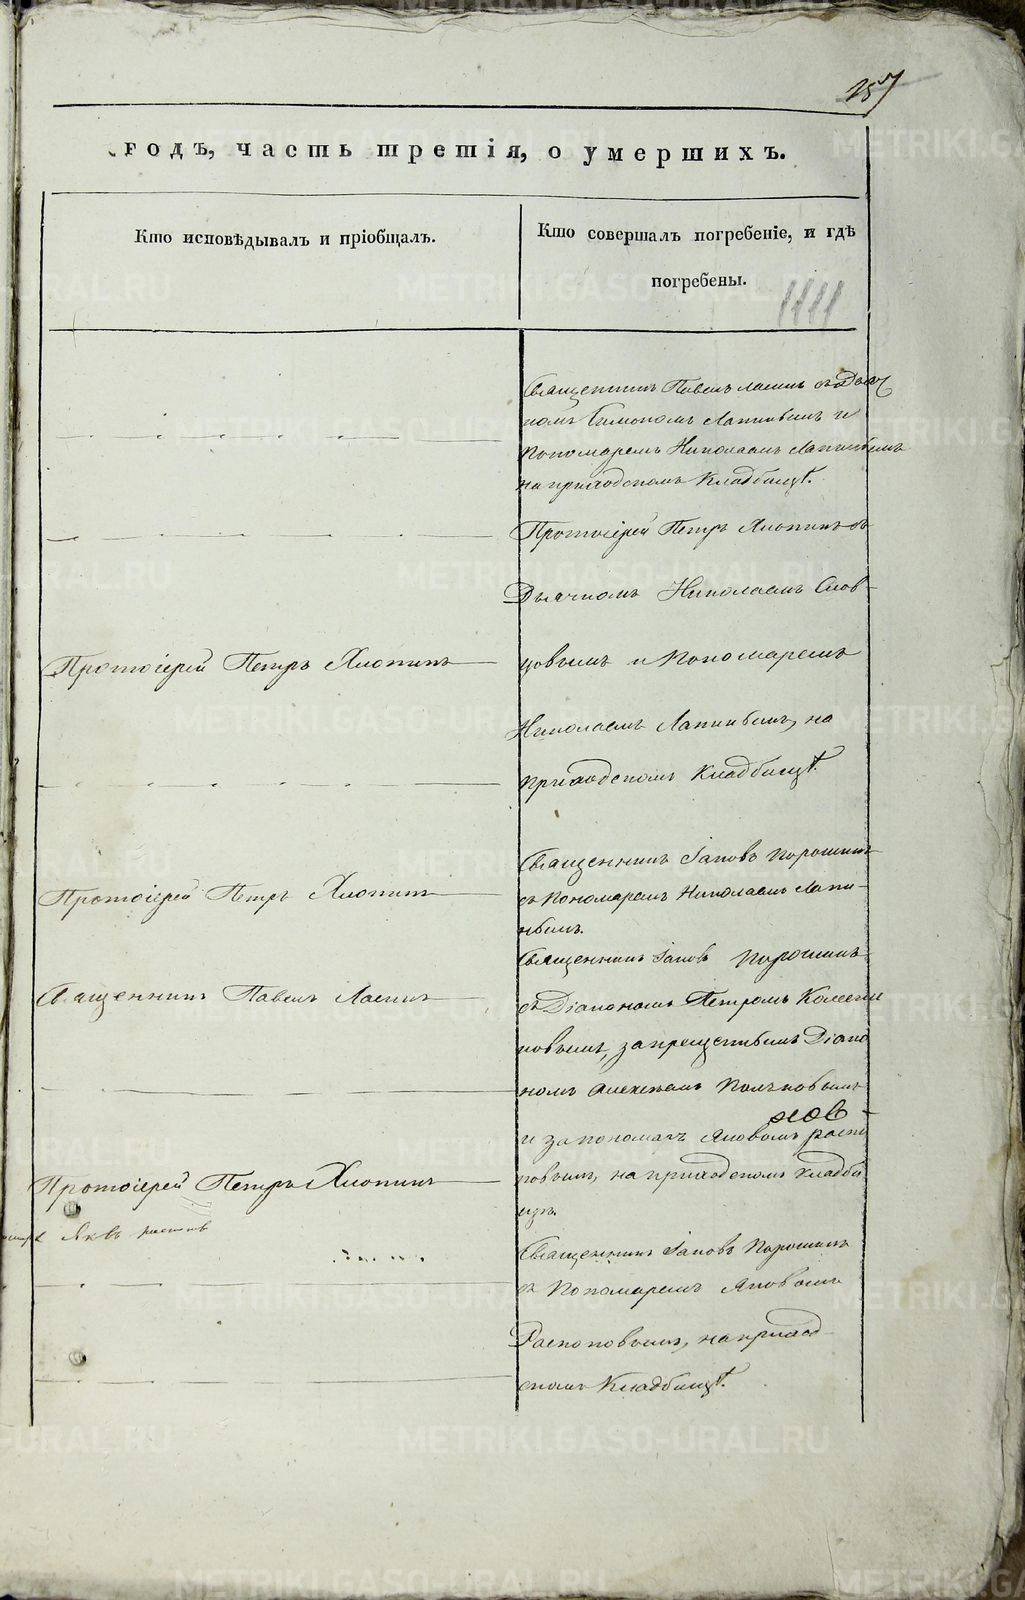 257
годъ, часть третія, о умершихъ.
Кто исповѣдывалъ и пріобщалъ.
Кто совершалъ погребеніе, и гдѣ
погребены.
Священникъ Павелъ съ дьяч
комъ Симономъ Лапинымъ и
Пономаремъ Николаемъ Лапинымъ
на приходскомъ Кладбищѣ.
Протоіерей Петръ Хлопинъ съ
Дьячкомъ Николаемъ Слов-
Протоіерей Петръ Хлопинъ
цовымъ и Пономаремъ
Николаемъ Лапинымъ, на
приходскомъ Кладбищѣ.
Священникъ Іаковъ Порошинъ
Протоіерей Петръ Хлопинъ
съ Пономаремъ Николаемъ Лапи-
нымъ.
Священникъ Іаковъ Порошинъ
Священникъ Павелъ
съ Діакономъ Петромъ
ковымъ, запрещеннымъ Діако
номъ Алексѣемъ
и Яковомъ
Протоіерей Петръ Хлопинъ
повымъ, на приходскомъ кладби
щѣ.
Священникъ Іаковъ Порошинъ
съ Пономаремъ Яковомъ
Распоповымъ, на приход-
скомъ Кладбищѣ.
METRIKI.GASO-URAL.RU